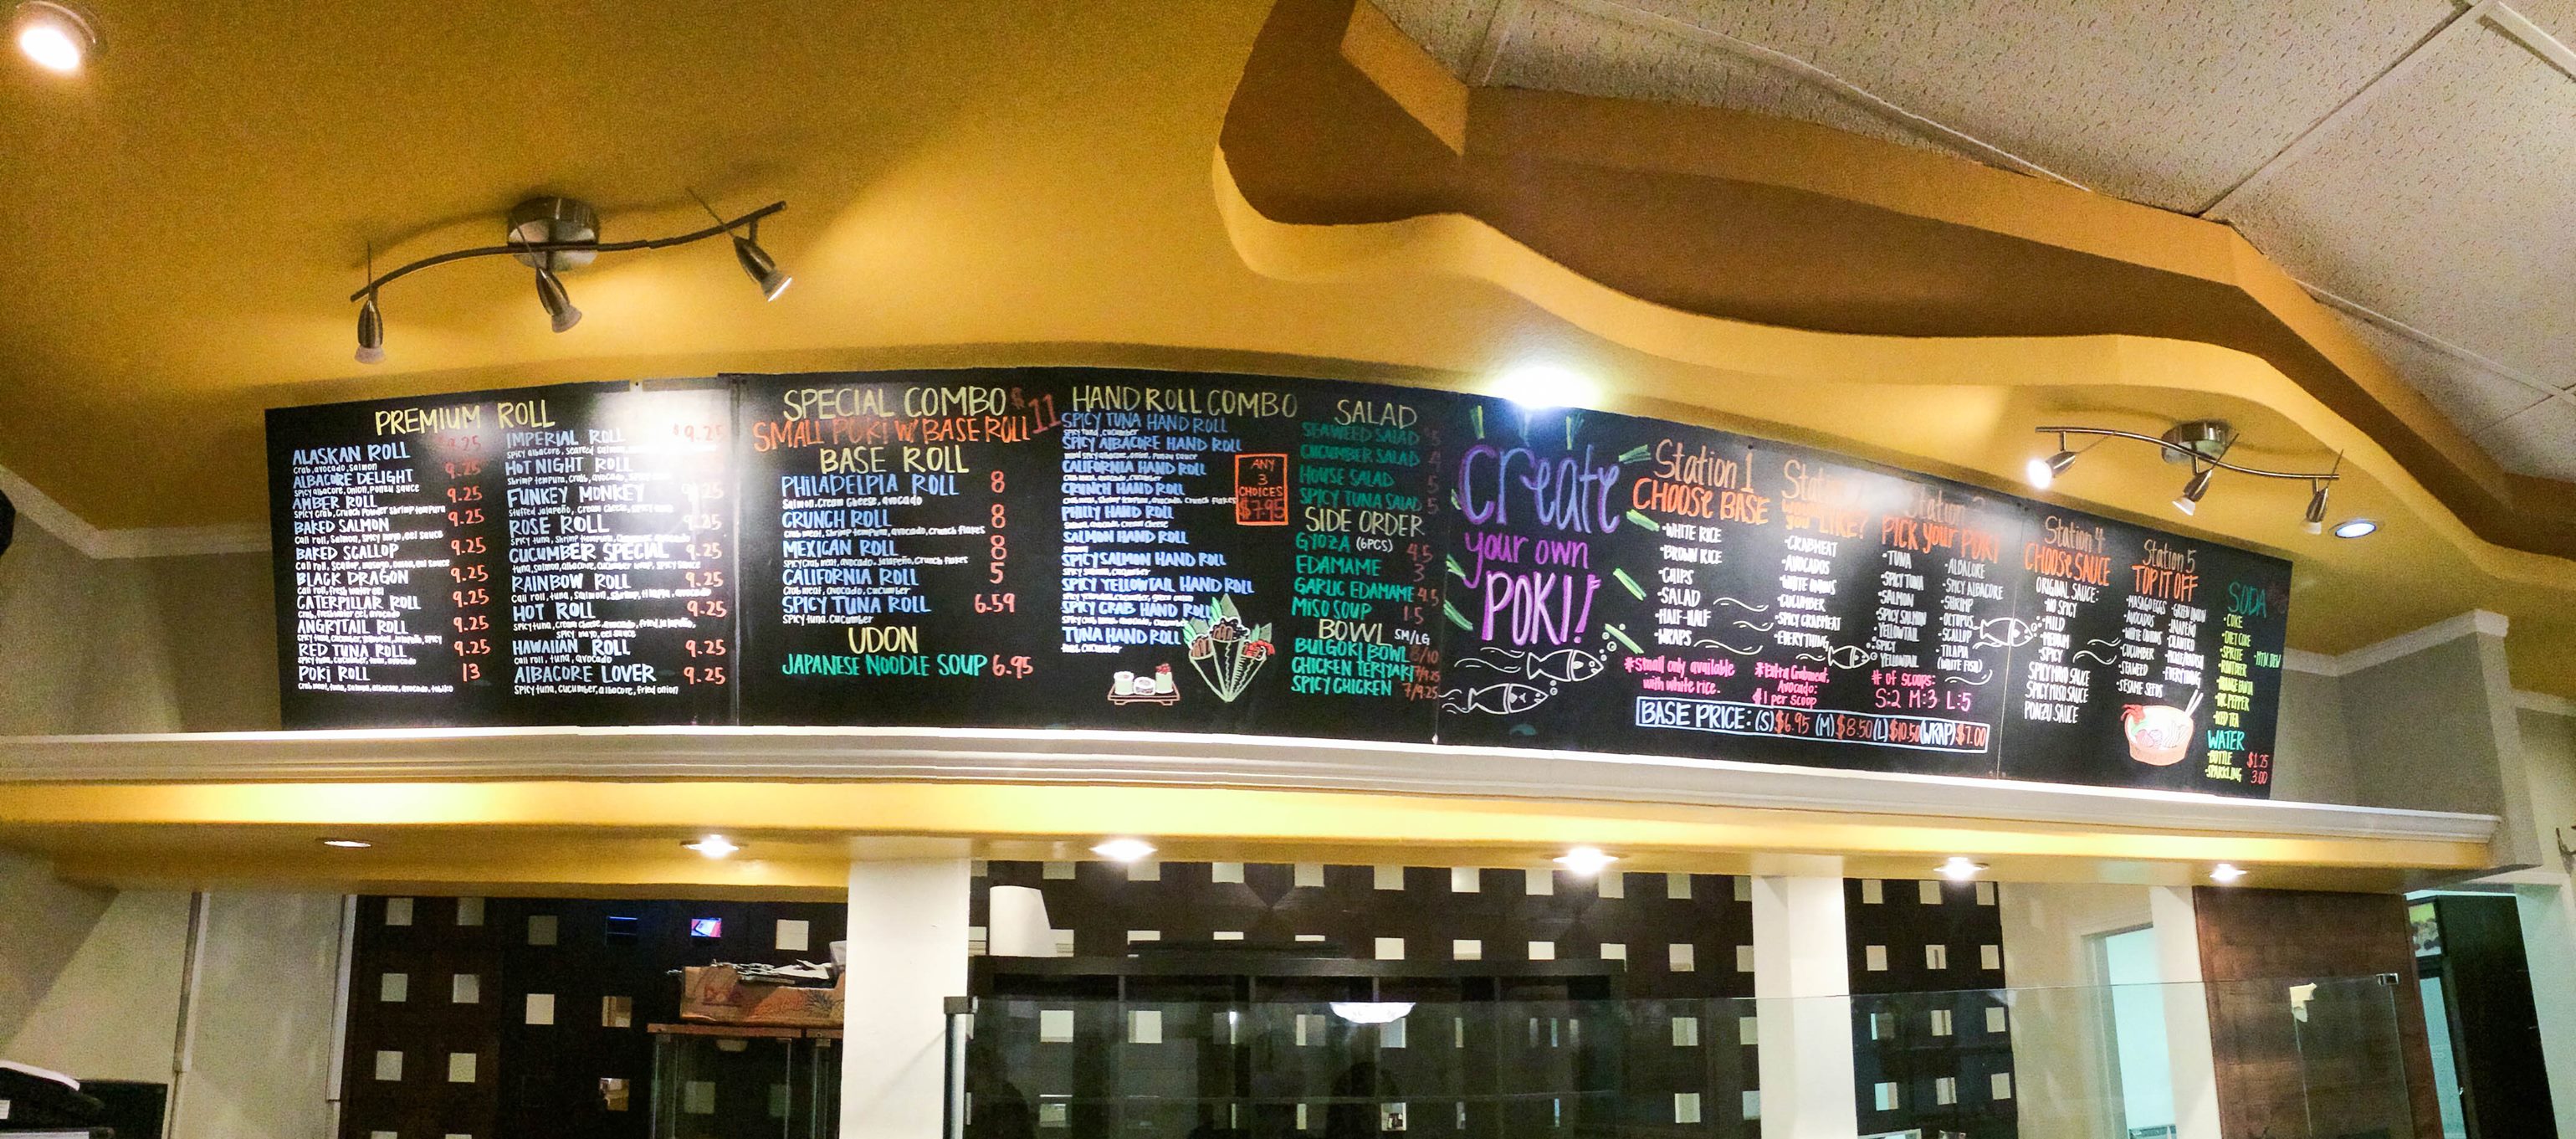 PREMIUM ROLL
ALASKAN ROLL 9.25
Crab, avocado, salmon
ALBACORE DELIGHT 9.25
Spicy albacore, onion, ponzu sauce
AMBER ROLL 9.25
Spicy crab, crunch powder shrimp tempura
BAKED SALMON 9.25
Cali roll, salmon, spicy mayo, eel sauce
BAKED SCALLOP 9.25
BLACK DRAGON 9.25
Cali roll, fresh water eel
CATERPILLAR ROLL 9.25
ANGRYTAIL ROLL 9.25
RED TUNA ROLL 9.25
POKI ROLL 13
IMPERIAL ROLL $9.25
Spicy albacore, seared salmon,
HOT NIGHT ROLL
Shrimp tempura, crab, avocado,
FUNKEY MONKEY
Stuffed jalapeño, cream cheese, spicy tuna
ROSE ROLL 9.25
CUCUMBER SPECIAL 9.25
tuna, salmon, albacore, cucumber wrap, spicy sauce
RAINBOW ROLL 9.25
Cali roll, tuna, salmon, shrimp, tilapia, avocado
HOT ROLL 9.25
Spicy tuna, cream cheese, avocado, fried jalapeño,
spicy mayo, eel sauce
HAWAIIAN ROLL 9.25
Cali roll, tuna, avocado
ALBACORE LOVER 9.25
Spicy tuna, cucumber, albacore, fried onion
SPECIAL COMBO $11
SMALL POKI W/ BASE ROLL
BASE ROLL
PHILADELPIA ROLL 8
Salmon, cream cheese, avocado
CRUNCH ROLL 8
Crab meat, shrimp tempura, avocado, crunch flakes
MEXICAN ROLL 8
Spicy crab meat, avocado, jalapeño, crunch flakes
CALIFORNIA ROLL 5
Crab meat, avocado, cucumber
SPICY TUNA ROLL 6.59
Spicy tuna, cucumber
UDON
JAPANESE NOODLE SOUP 6.95
HAND ROLL COMBO
SPICY TUNA HAND ROLL
Spicy tuna, cucumber
SPICY ALBACORE HAND ROLL
CALIFORNIA HAND ROLL
Crab meat, avocado, cucumber
CRUNCH HAND ROLL
Crab meat, shrimp tempura, avocado, crunch flakes
PHILLY HAND ROLL
Salmon, avocado, cream cheese
SALMON HAND ROLL
SPICY SALMON HAND ROLL
Spicy salmon, cucumber
SPICY YELLOWTAIL HAND ROLL
SPICY CRAB HAND ROLL
TUNA HAND ROLL
ANY
3
CHOICES
$7.95
SALAD
SEAWEED SALAD 5
CUCUMBER SALAD 4
HOUSE SALAD 5
SPICY TUNA SALAD 5
SIDE ORDER
GYOZA (6PCS) 4.5
EDAMAME 3
GARLIC EDAMAME 4.5
MISO SOUP 1.5
BOWL SM/LG
BULGOKI BOWL 8/10
CHICKEN TERIYAKI 7/9.25
SPICY CHICKEN 7/9.25
Create
your own
POKI!
Station 1
CHOOSE BASE
•WHITE RICE
•BROWN RICE
•CHIPS
•SALAD
•HALF-HALF
•WRAPS
*small only available
with white rice.
•CRABMEAT
•AVOCADOS
•WHITE ONIONS
•CUCUMBER
•SPICY CRABMEAT
•EVERYTHING
*Extra Crabmeat,
Avocado:
$1 per scoop
PICK your POKI
•TUNA
•SPICY TUNA
•SALMON
•SPICY SALMON
•YELLOWTAIL
•SPICY
YELLOWTAIL
•ALBACORE
•SPICY ALBACORE
•SHRIMP
•OCTOPUS
•SCALLOP
•TILAPIA
(WHITE FISH)
# of scoops:
S:2 M:3 L:5
BASE PRICE: (S)$6.95 (M)$8.50 (L)$10.50 (WRAP)$7.00
Station 4
CHOOSE SAUCE
ORIGINAL SAUCE:
•NO SPICY
•MILD
•MEDIUM
•SPICY
SPICY MAYO SAUCE
SPICY MISO SAUCE
PONZU SAUCE
Station 5
TOP IT OFF
•MASAGO EGGS
•AVOCADOS
•WHITE ONIONS
•CUCUMBER
•SEAWEED
•SESAME SEEDS
•GREEN ONION
•JALAPEÑO
•CILANTRO
•EVERYTHING
SODA
•COKE
•DIET COKE
•SPRITE
•MTN DEW
•ROOT BEER
•ORANGE FANTA
•DR. PEPPER
•ICED TEA
WATER
•BOTTLE $1.25
•SPARKLING 3.00